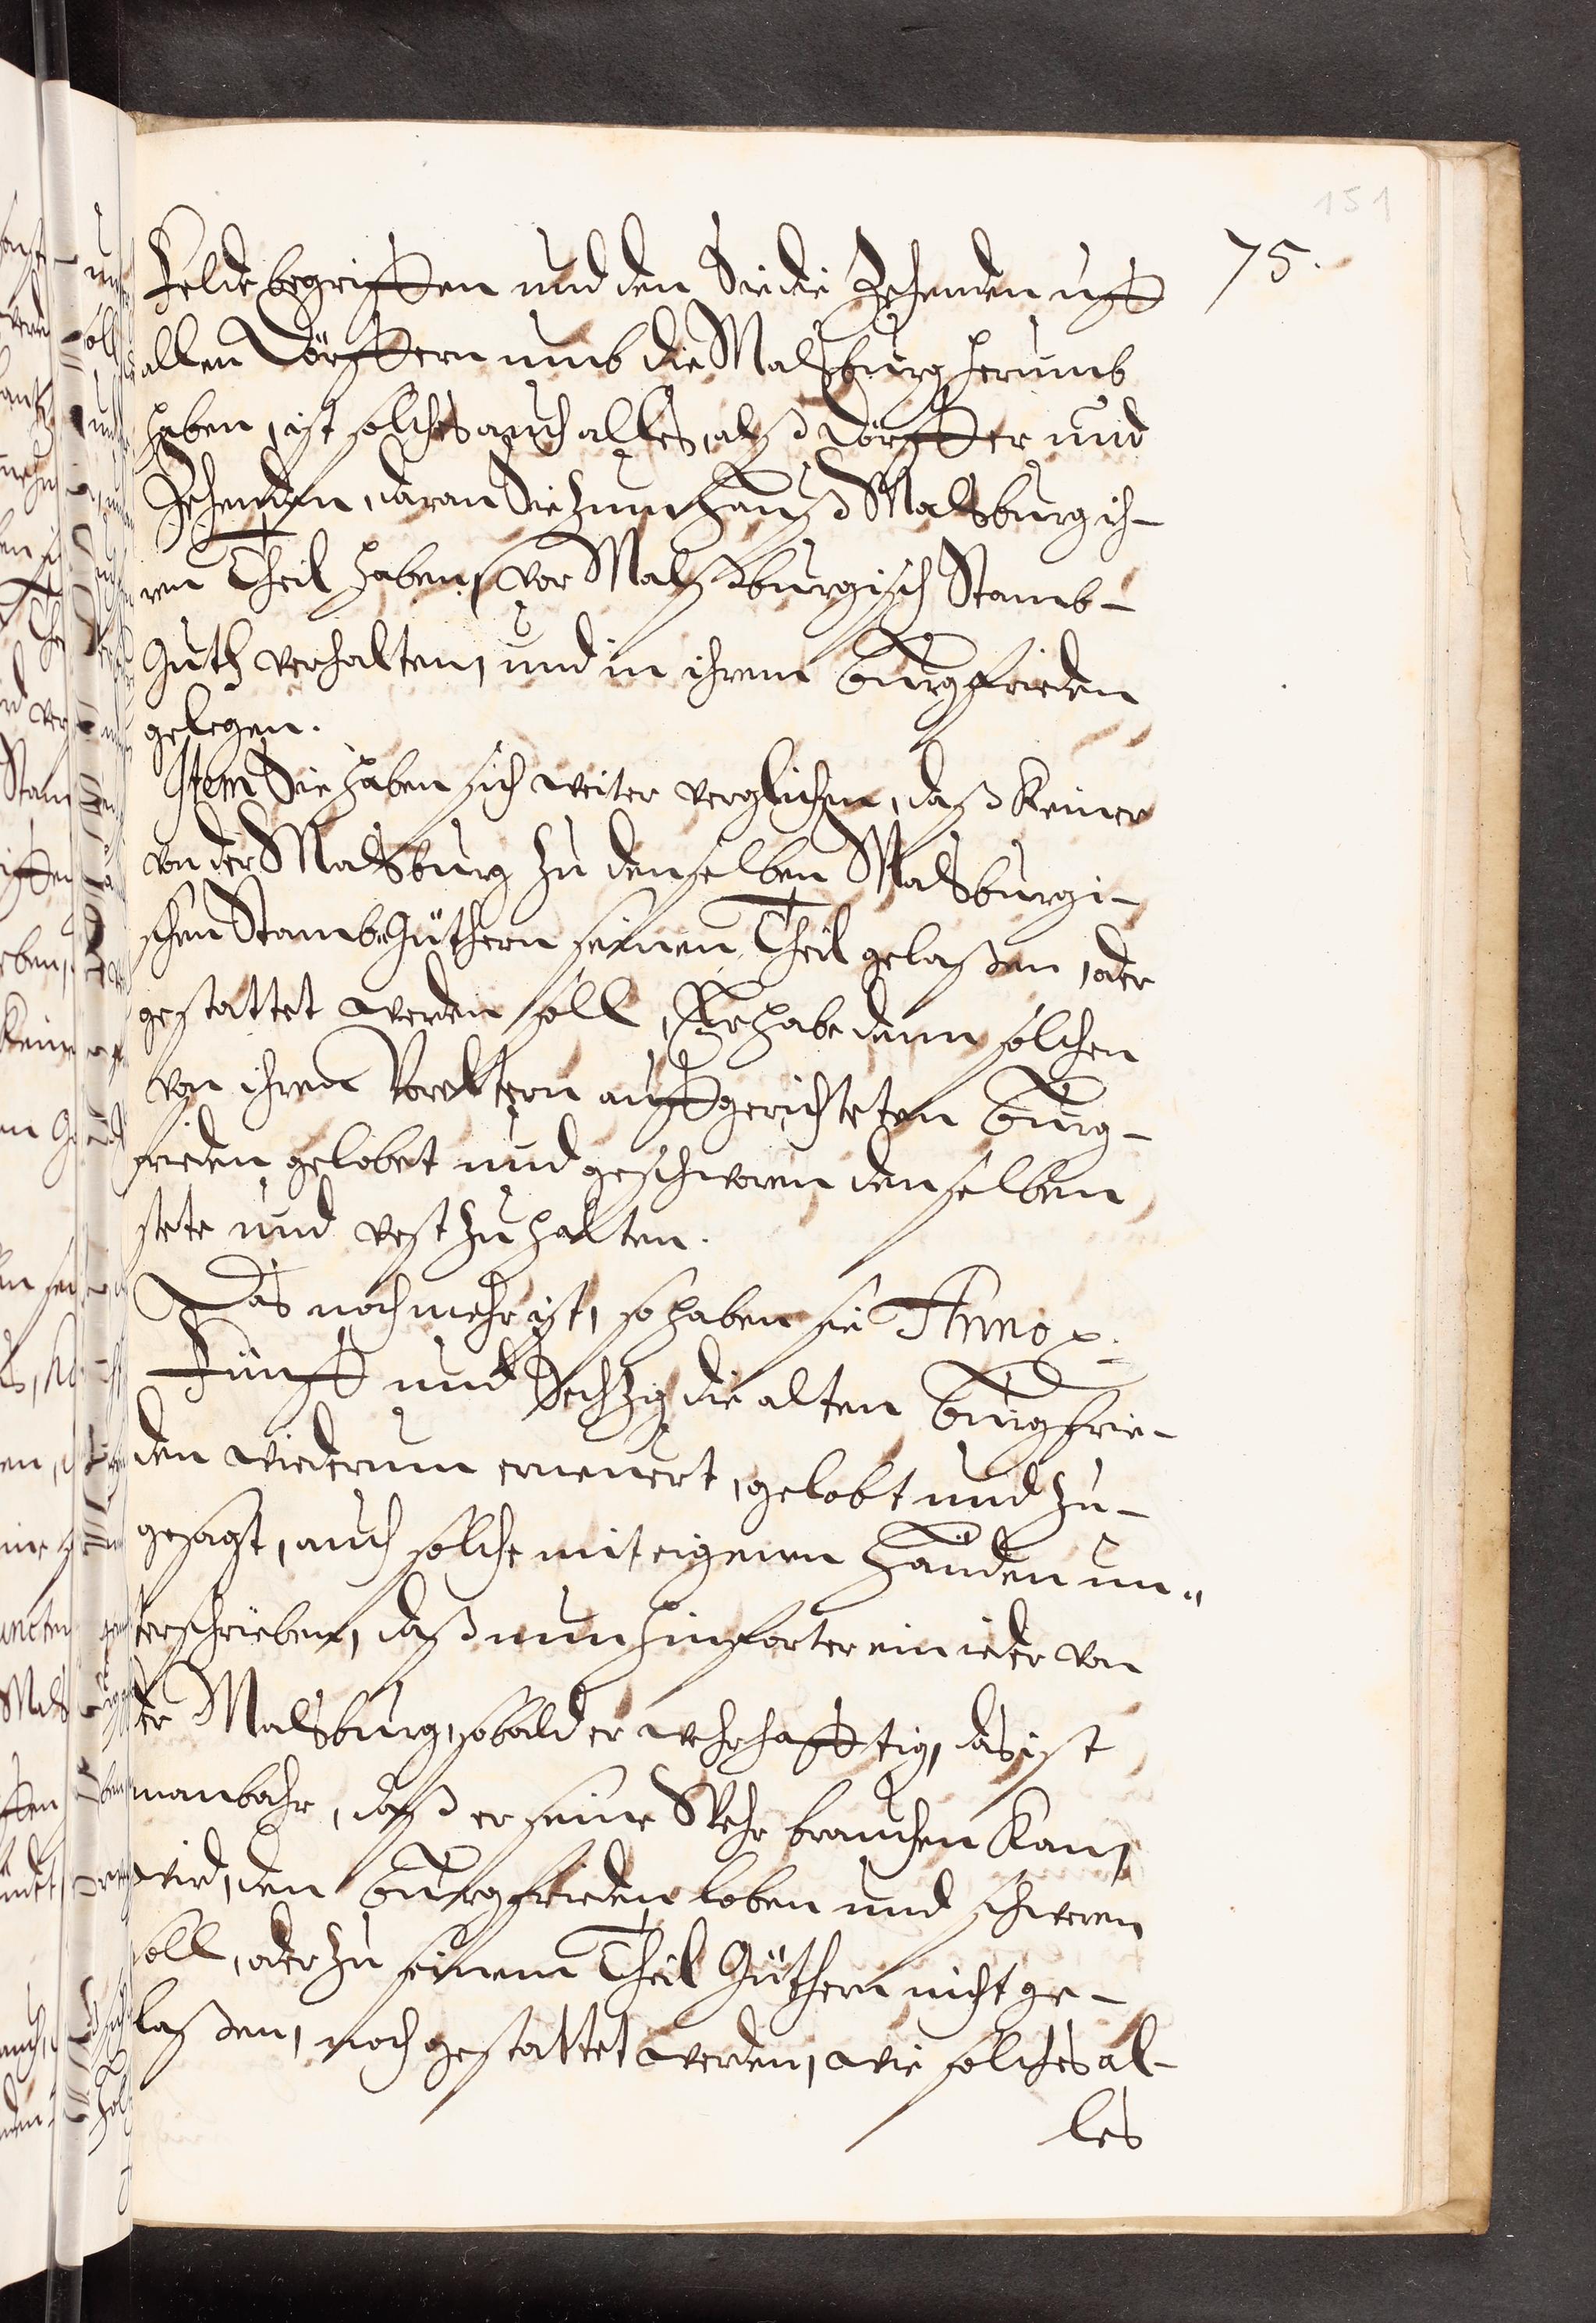 151
75.
Felde begriffen und den Sie die Zehenden uff
allen Dörffern umb die Malsburg herumb
haben, ist solches auch alles, alß Dörffer und
Zehenden, daran Sie zum Hauß Malsburg ih-
ren Theil haben, vor Malßburgisch Stamb-
Guth verhalten, und in ihrem Burgfrieden
gelegen.
Item Sie haben sich weiter verglichen, daß Keiner
von der Malsburg zu denselben Malsburgi-
schen Stamb Güthern seinen Theil gelaßen, oder
gestattet werden soll, Er habe denn solchen
von ihren Voreltern auffgerichteten Burg-
frieden gelobet und geschworen denselben
stete und vest zu halten.
Das noch mehr ist, so haben sie Anno p.
Fünff und Sechzig die alten Burgfrie-
den wiederum erneuert, gelobt und zu-
gesagt, auch solche mit eigenen Händen un-
terschrieben, daß nun hinforter ein ieder von
der Malsburg, sobald er wehrhafftig, das ist
manbahr, daß er seine Wehr brauchen Kan,
wird, den Burgfrieden loben und schweren
soll, oder zu seinem Theil Güthern nicht ge-
laßen, noch gestattet werden, wie solches al-
les